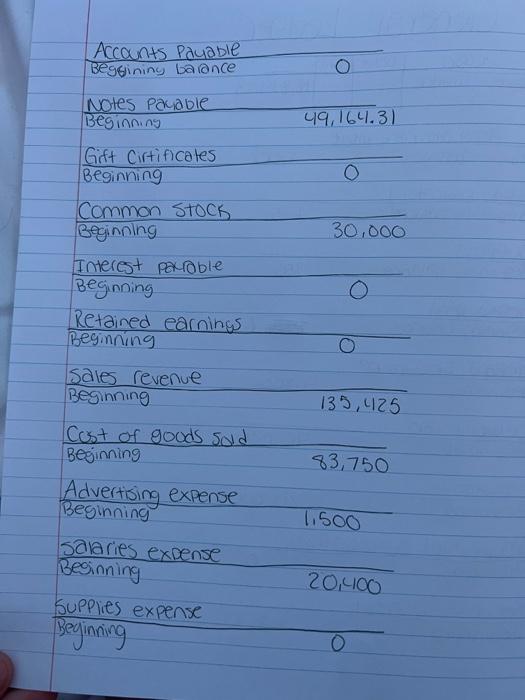 Accounts Payable
Beggining balance 0
Notes Payable
Beginning 49,164.31
Gift Cirtificates
Beginning 0
Common Stock
Beginning 30,000
Interest payable
Beginning 0
Retained earnings
Beginning 0
Sales revenue
Beginning 135,425
Cost of goods sold
Beginning 83,750
Advertising expense
Beginning 1,500
Salaries expense
Beginning 20,400
Supplies expense
Beginning 0